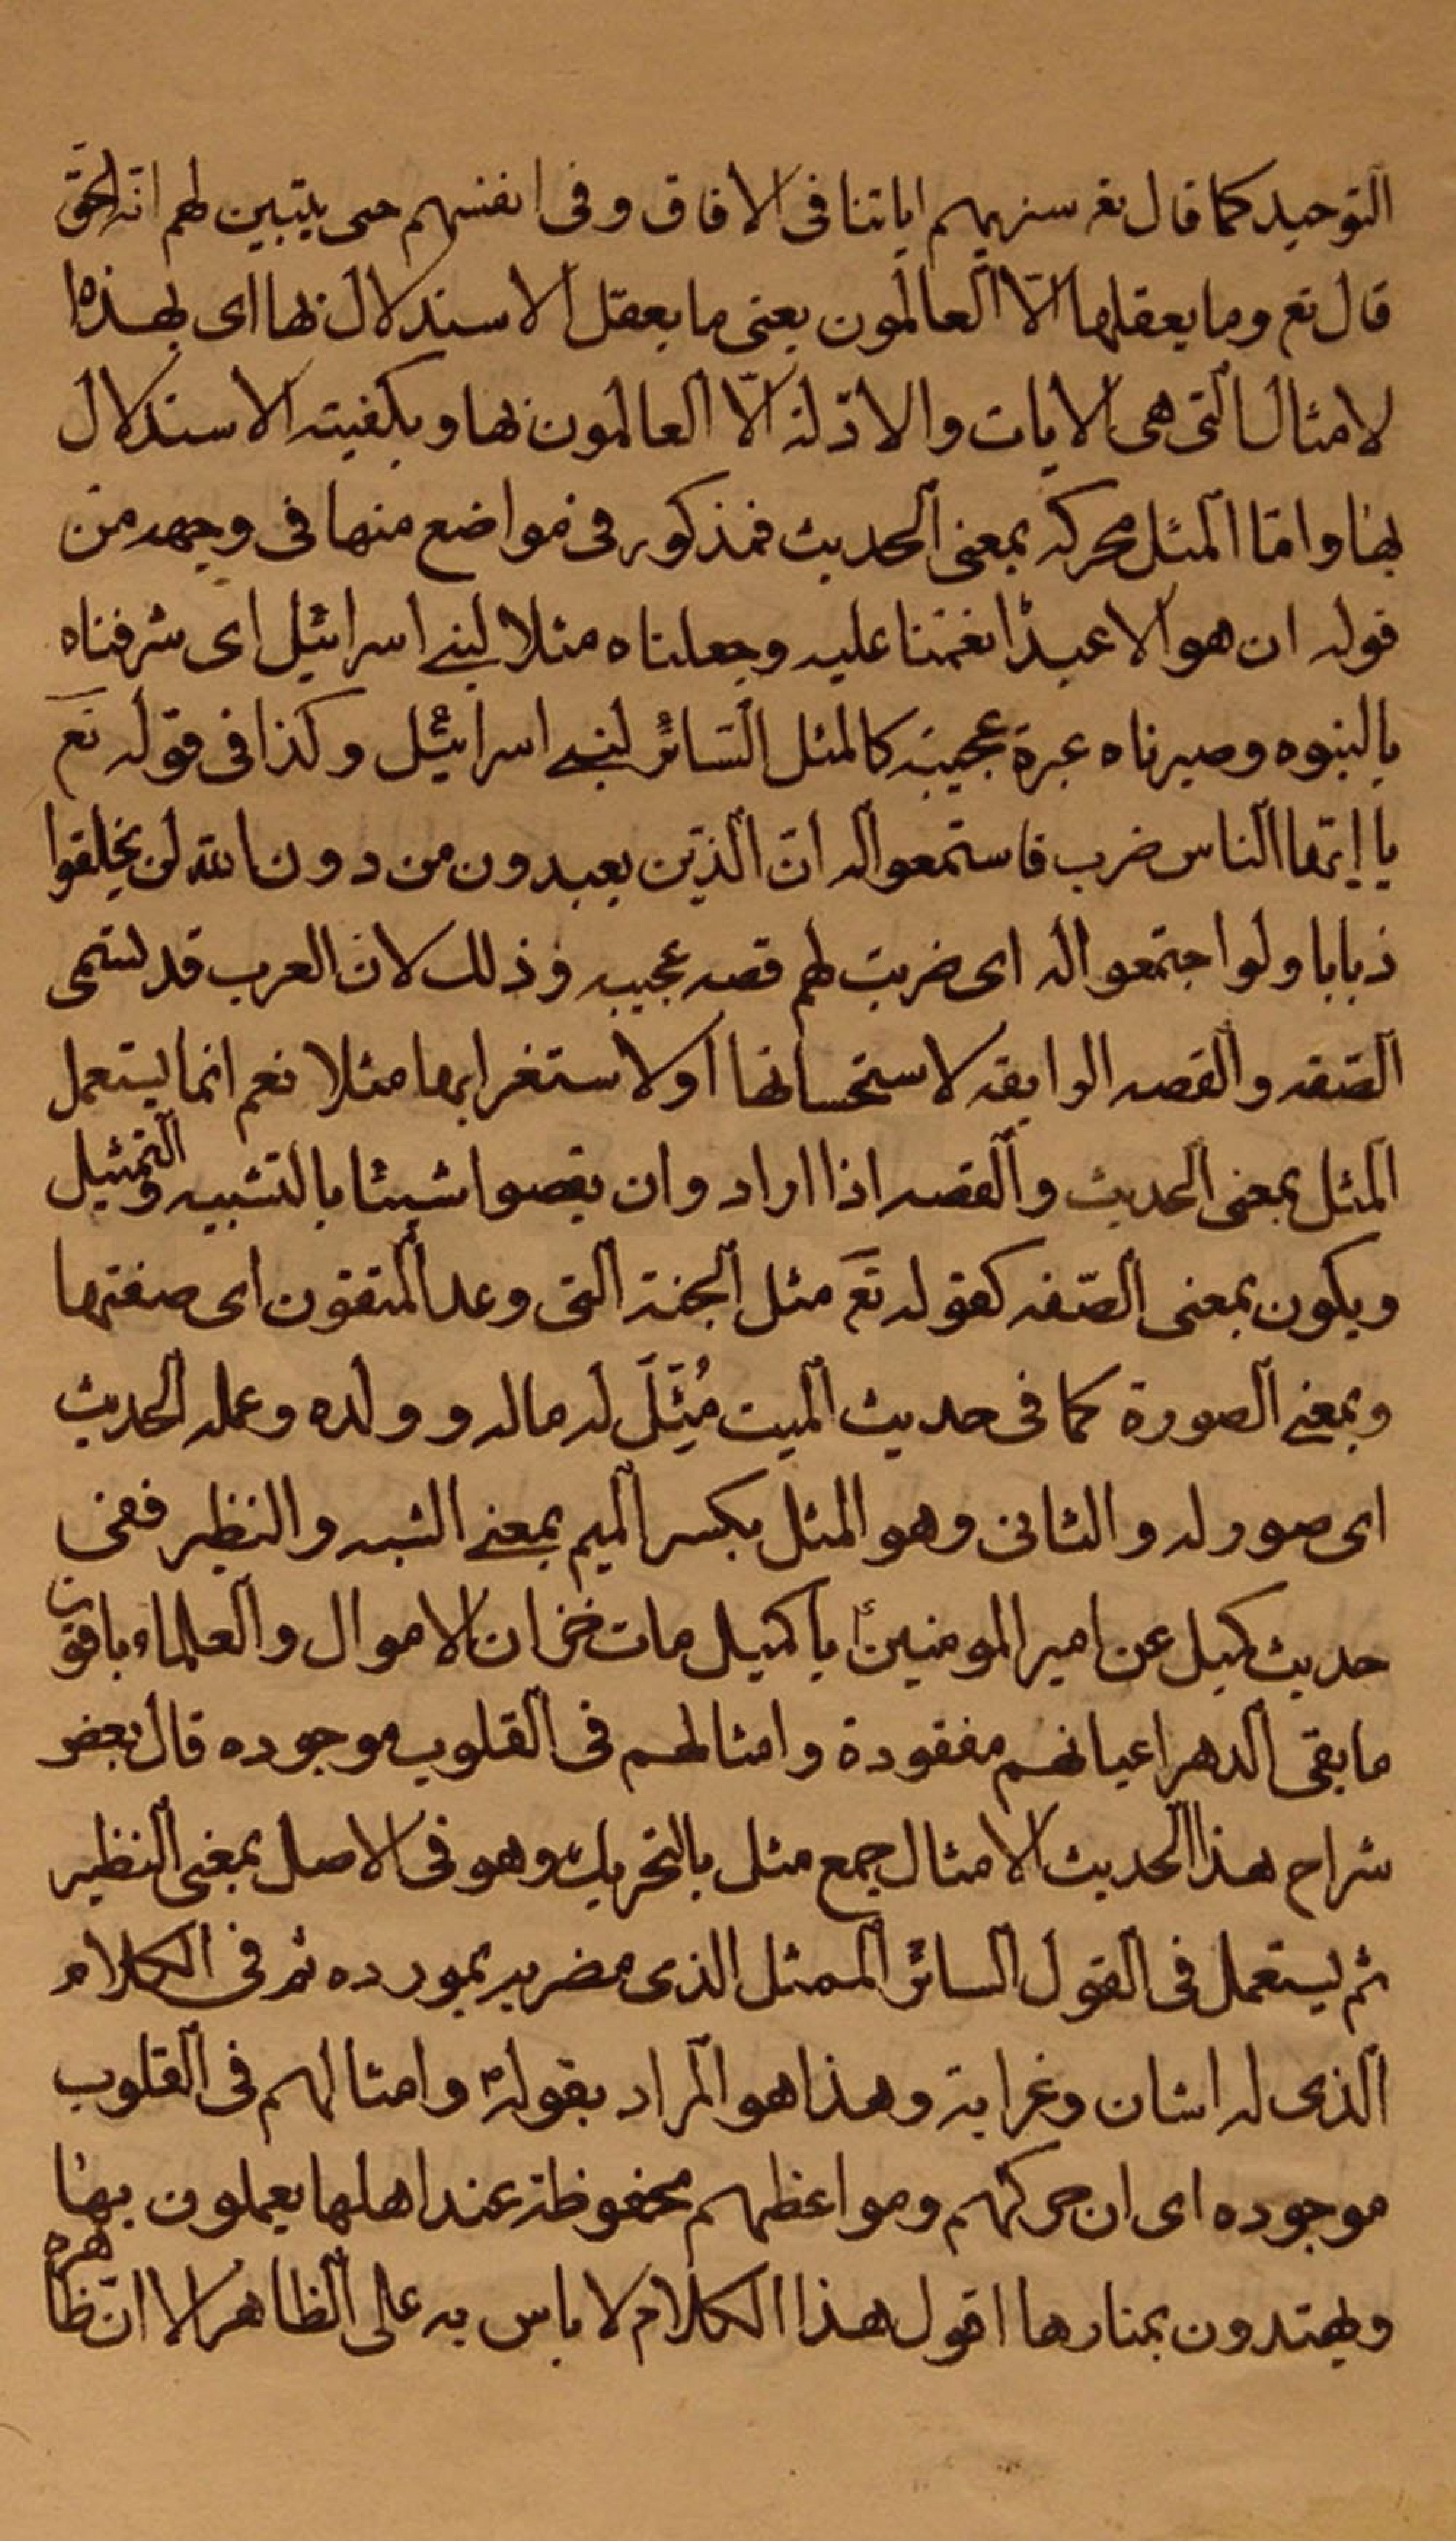 التوحيد كما قال تع سنريهم اياتنا فى الافاق وفى انفسهم حتى يتبين لهم انه الحق
قال تع وما يعقلها الّا العالمون يعنى ما يعقل الاستدلال بها اى بهذه ا
لامثال التى هى الايات والادّلة الّا العالمون بها وبكفيته الاستدلال
بها وامّا المثل محركه بمعنى الحديث فمذكور فى مواضع منها فى وجهه من
قوله ان هو الا عبدٌ انعمنا عليه وجعلناه مثلا لبنى اسرائيل اى شرفناه
بالنبوه وصيرناه عبرة عجيبة كالمثل السّائر لبنى اسرائيل وكذا فى قوله تع
يا ايّها الناس ضرب فاستمعوا له انّ الّذين يعبدون من دون الله لن يخلقوا
ذبابا ولو اجتمعوا له اى ضربت لهم قصه عجيبه وذلك لان العرب قد تسمى
الصّفه والقصه الرايقه لاستحسانها او لاستغرابها مثلا نعم انما يستعمل
المثل بمعنى الحديث والقصه اذا اراد وان يقصوا شيئا بالتشبيه والتمثيل
ويكون بمعنى الصّفه كقوله تع مثل الجنة التى وعد المتقون اى صفتها
وبمعنى الصورة كما فى حديث الميت مُثِّلَ له ماله وولده وعمله الحديث
اى صور له والثانى وهو المثل بكسر الميم بمعنى الشبه والنظير ففى
حديث كميل عن امير المومنينؑ يا كميل مات خزان الاموال والعلماء باقون
ما بقى الدهر اعيانهم مفقودة وامثالهم فى القلوب موجوده قال بعض
شراح هذا الحديث الامثال جمع مثل بالتحريك وهو فى الاصل بمعنى النظير
ثم يستعمل فى القول السائر الممثل الذى مضربه بمورده ثم فى الكلام
الذى له اشان وغرابة وهذا هو المراد بقولهؑ وامثالهم فى القلوب
موجوده اى ان حركتهم ومواعظهم محفوظة عند اهلها يعملون بها
ويهتدون بمنارها اقول هذا الكلام لا باس به على الظاهر الا انّ ظاهره